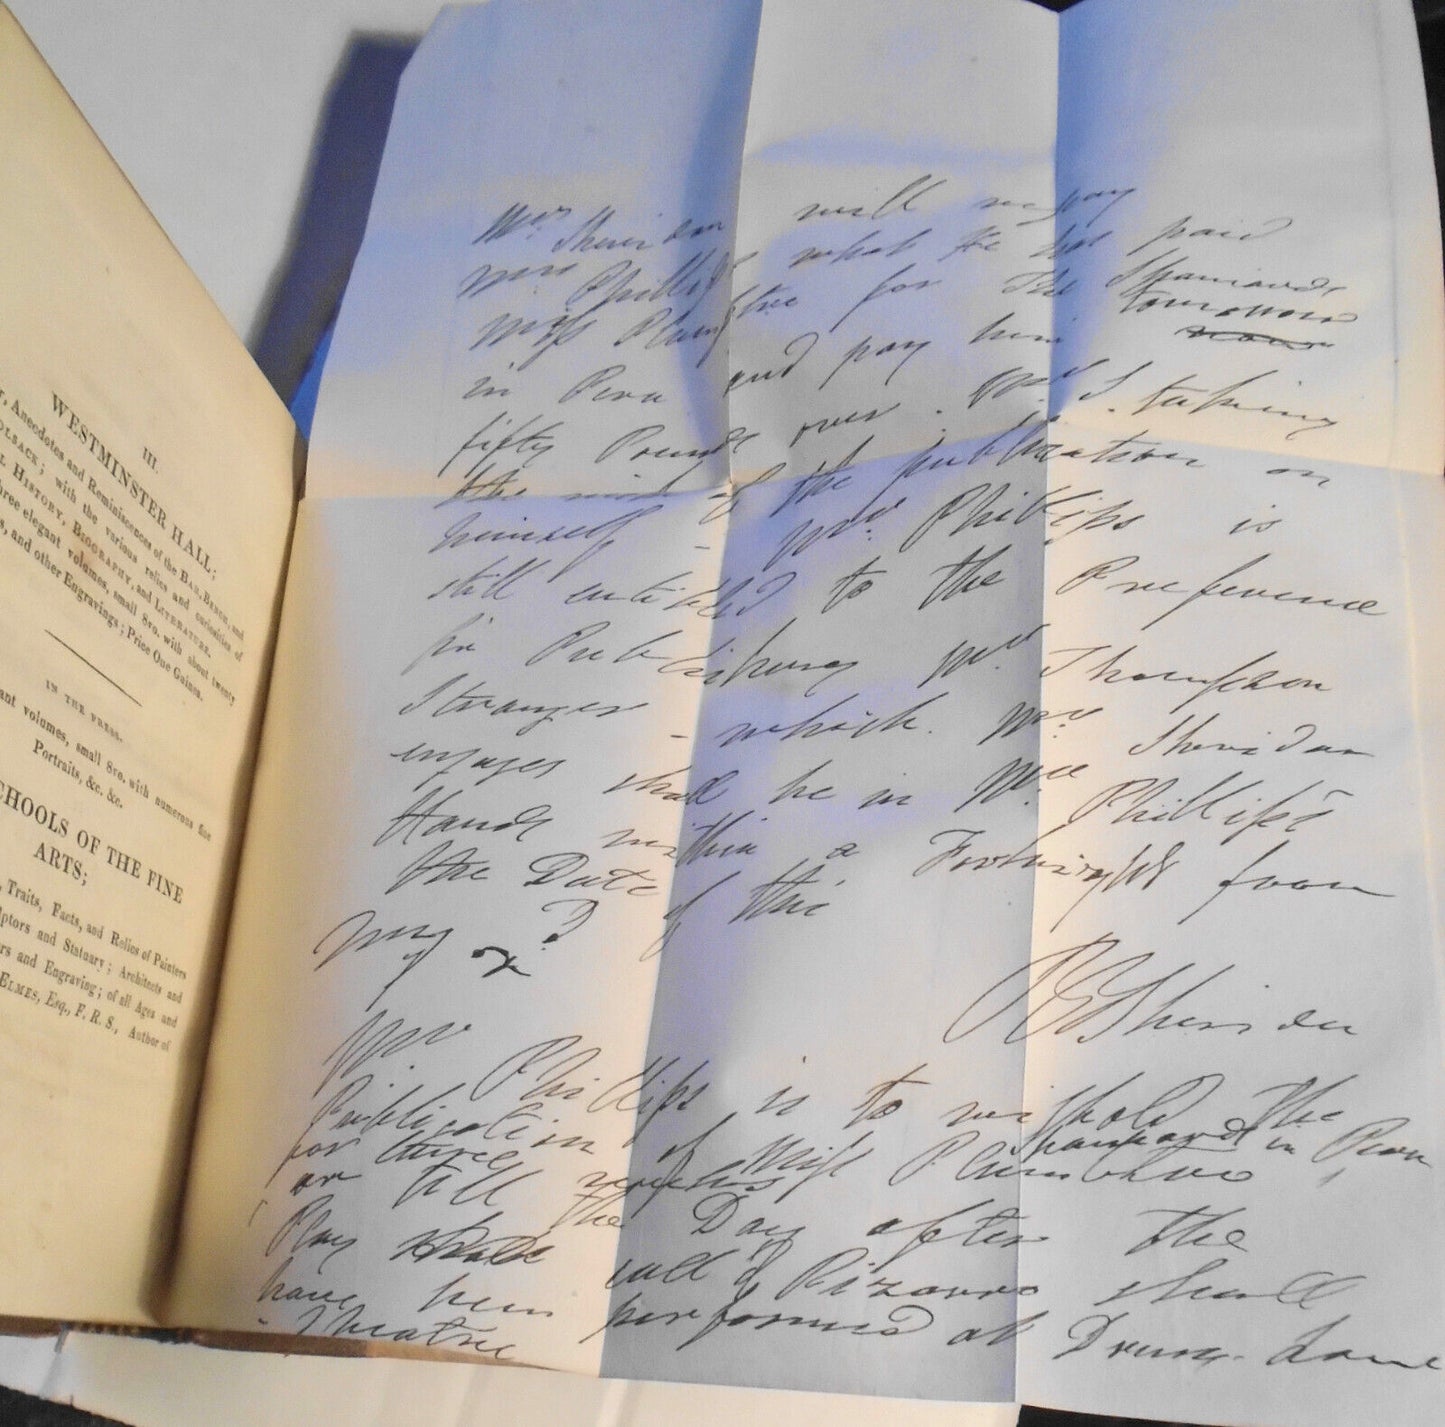 III.
WESTMINSTER HALL;
Anecdotes and Reminiscences of the BAR, BENCH, and
OLSACK; with the various relics and curiosities of
L HISTORY, BIOGRAPHY, and LITERATURE.
hree elegant volumes, small 8vo. with about twenty
s, and other Engravings; Price One Guinea.
IN THE PRESS.
ant volumes, small 8vo. with numerous fine
Portraits, &c. &c.
CHOOLS OF THE FINE
ARTS;
, Traits, Facts, and Relics of Painters
ptors and Statuary; Architects and
rs and Engraving; of all Ages and
ELMES, Esq., F. R. S., Author of
Mr. Sheridan will repay
Mr Phillips what he has paid
Miss Plumptre for The Spaniards
in Peru and pay him tomorrow
fifty Pounds over. Mr. S. taking
the risk of the publication on
himself - Mr. Phillips is
still entitled to the Preference
for Publishing Mr. Thompson
Stranger - which Mr. Sheridan
engages shall be in Mr. Phillips's
Hands within a Fortnight from
the Date of this
RBSheridan
Mr Phillips is to withold the
Publication of Miss Plumptre Spaniards in Peru
for three weeks
or till the Day after the
Play call'd Pizarro shall
have been performed at Drury-Lane
Theatre